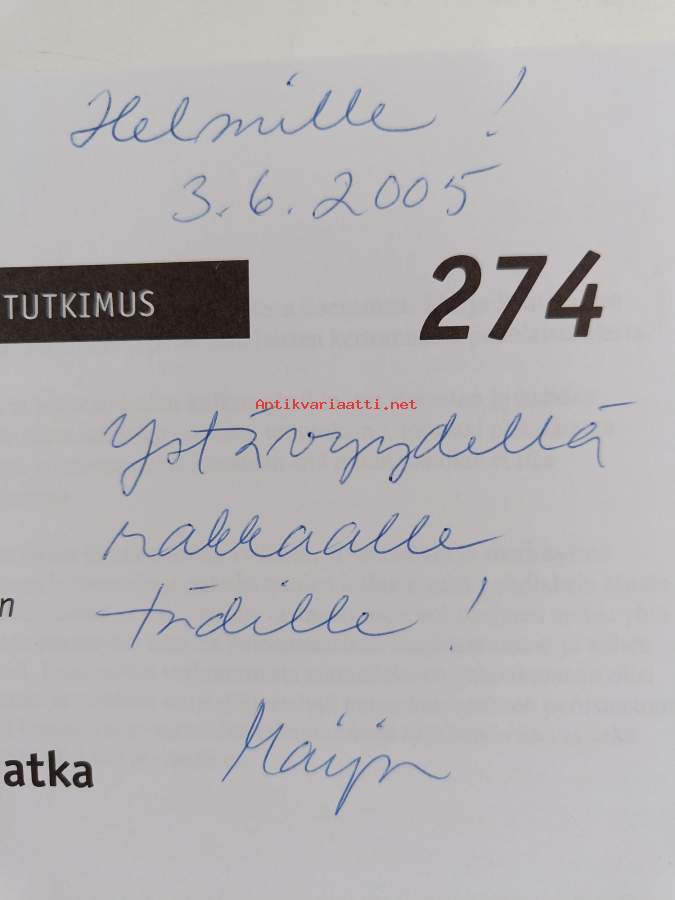 Helmille !
3.6.2005
TUTKIMUS
274
Antikvariaatti.net
Ystävyydellä
rakkaalle
n
tädille !
Maija
atka